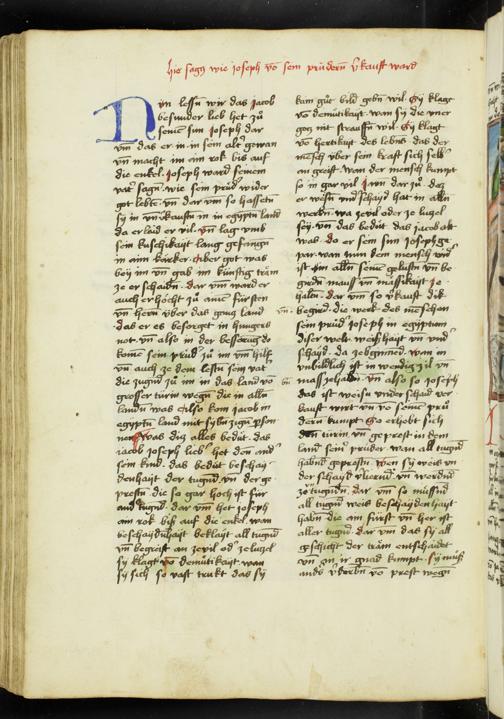 hie sagt wie joseph vō sein prüdern v̄kauft ward
Nun lesen wir das jacob
besunder lieb het zů
seinē sun joseph dar
vm das er in in seim alt gewan
vn̄ macht im ain rok bis auf
die enkel. joseph ward seinem
vatˀ sagn̄ wie sein prüdˀ wider
got lebtē. vn̄ dar vm so hasseten
sy in vn̄ v̄kauftn̄ in in egyptn̄ land
da er laid er vil. vn̄ lag vmb
sein kuschikayt lang gefangn̄
in ainem kärker. Aber got was
bey im vn̄ gab im künftig träm
ze er schaidn̄. dar vm ward er
auch er höcht zů ainē fürsten
vn̄ hern über das gancz land
das er es besorget in hungers
not. vn̄ also in der besorgūg do
komē sein prüdˀ zů im vm hilf
vn̄ auch ze dem lesten sein vatˀ
die zugn̄ zů im in das land vō
grosser turin wegn̄ die in alln̄
landn̄ was Also kom jacob in
egyptn̄ land mit sybn̄czign̄ pson
was dicz alles bedüt. das
jacob joseph liebˀ het den andˀ
sein kind. das bedüt beschay
denhayt der tugnd̄ vn̄ der ge
prestn̄ die so gar hoch ist für
and tugnd̄. dar vm het joseph
ain rok bis auf die enkel. wan
beschaydn̄hayt beklayt all tugnd̄
vn̄ begreift an zevil od zelüczel
sy klagt vō demütikayt wan
sy sich so vast trukt das sy
kain gůt bild gebn̄ wil. Sy klagt
vō demütikayt. wan sy die vner
gog mit straffn̄ wil. Sy klagt
vō hertikayt des lebns̄ das der
mēsch über sein kraft sich selbˀ
an greift. wan der mensch kumpt
so in gar vil irrn̄ dar zů. dez
er wēsn̄ vn̄ schayd hat in alln̄
werkn̄. wa zevil oder ze lüczel
sey. vn̄ das bedüt das jacob alt
was. do er sein sun joseph ge
par. wan nun dem mensch wirdˀ
ist in alln̄ seinē gelustn̄ vn̄ be
girdn̄ mass vn̄ mässikayt ze
haltn̄. dar vm so v̄kauft dik
begird. die werk. des mēschen
sein prüdˀ joseph in egyptum
diser welt. weishayt vn̄ vndˀ
schayd. da zebeginned. wan in
vnbildlich ist in wendig zů vn̄
mass zehabn̄. vn̄ also so joseph
das ist weislu vnder schaid ver
kauft wirt vn̄ vō seinē prü
dern kumpt So erhebt sich
den turin vn̄ geprest in dem
land seinˀ prüder. wan all tugnd̄
habnd geprestn̄. wen sy weis vn̄
der schayd v̄lierend̄. vn̄ werdnd
zů tugndn̄. dar vm so müssnd
all tugnd̄ weis beschaydenhayt
habn̄. die ain fürst vn̄ her ist
aller tugnd̄. dar vm das sy all
geschicht der träm entschaidet
vn̄ zů ir gnad kumpt. Sy můss
ands v̄derbn̄ vō prest wegn̄